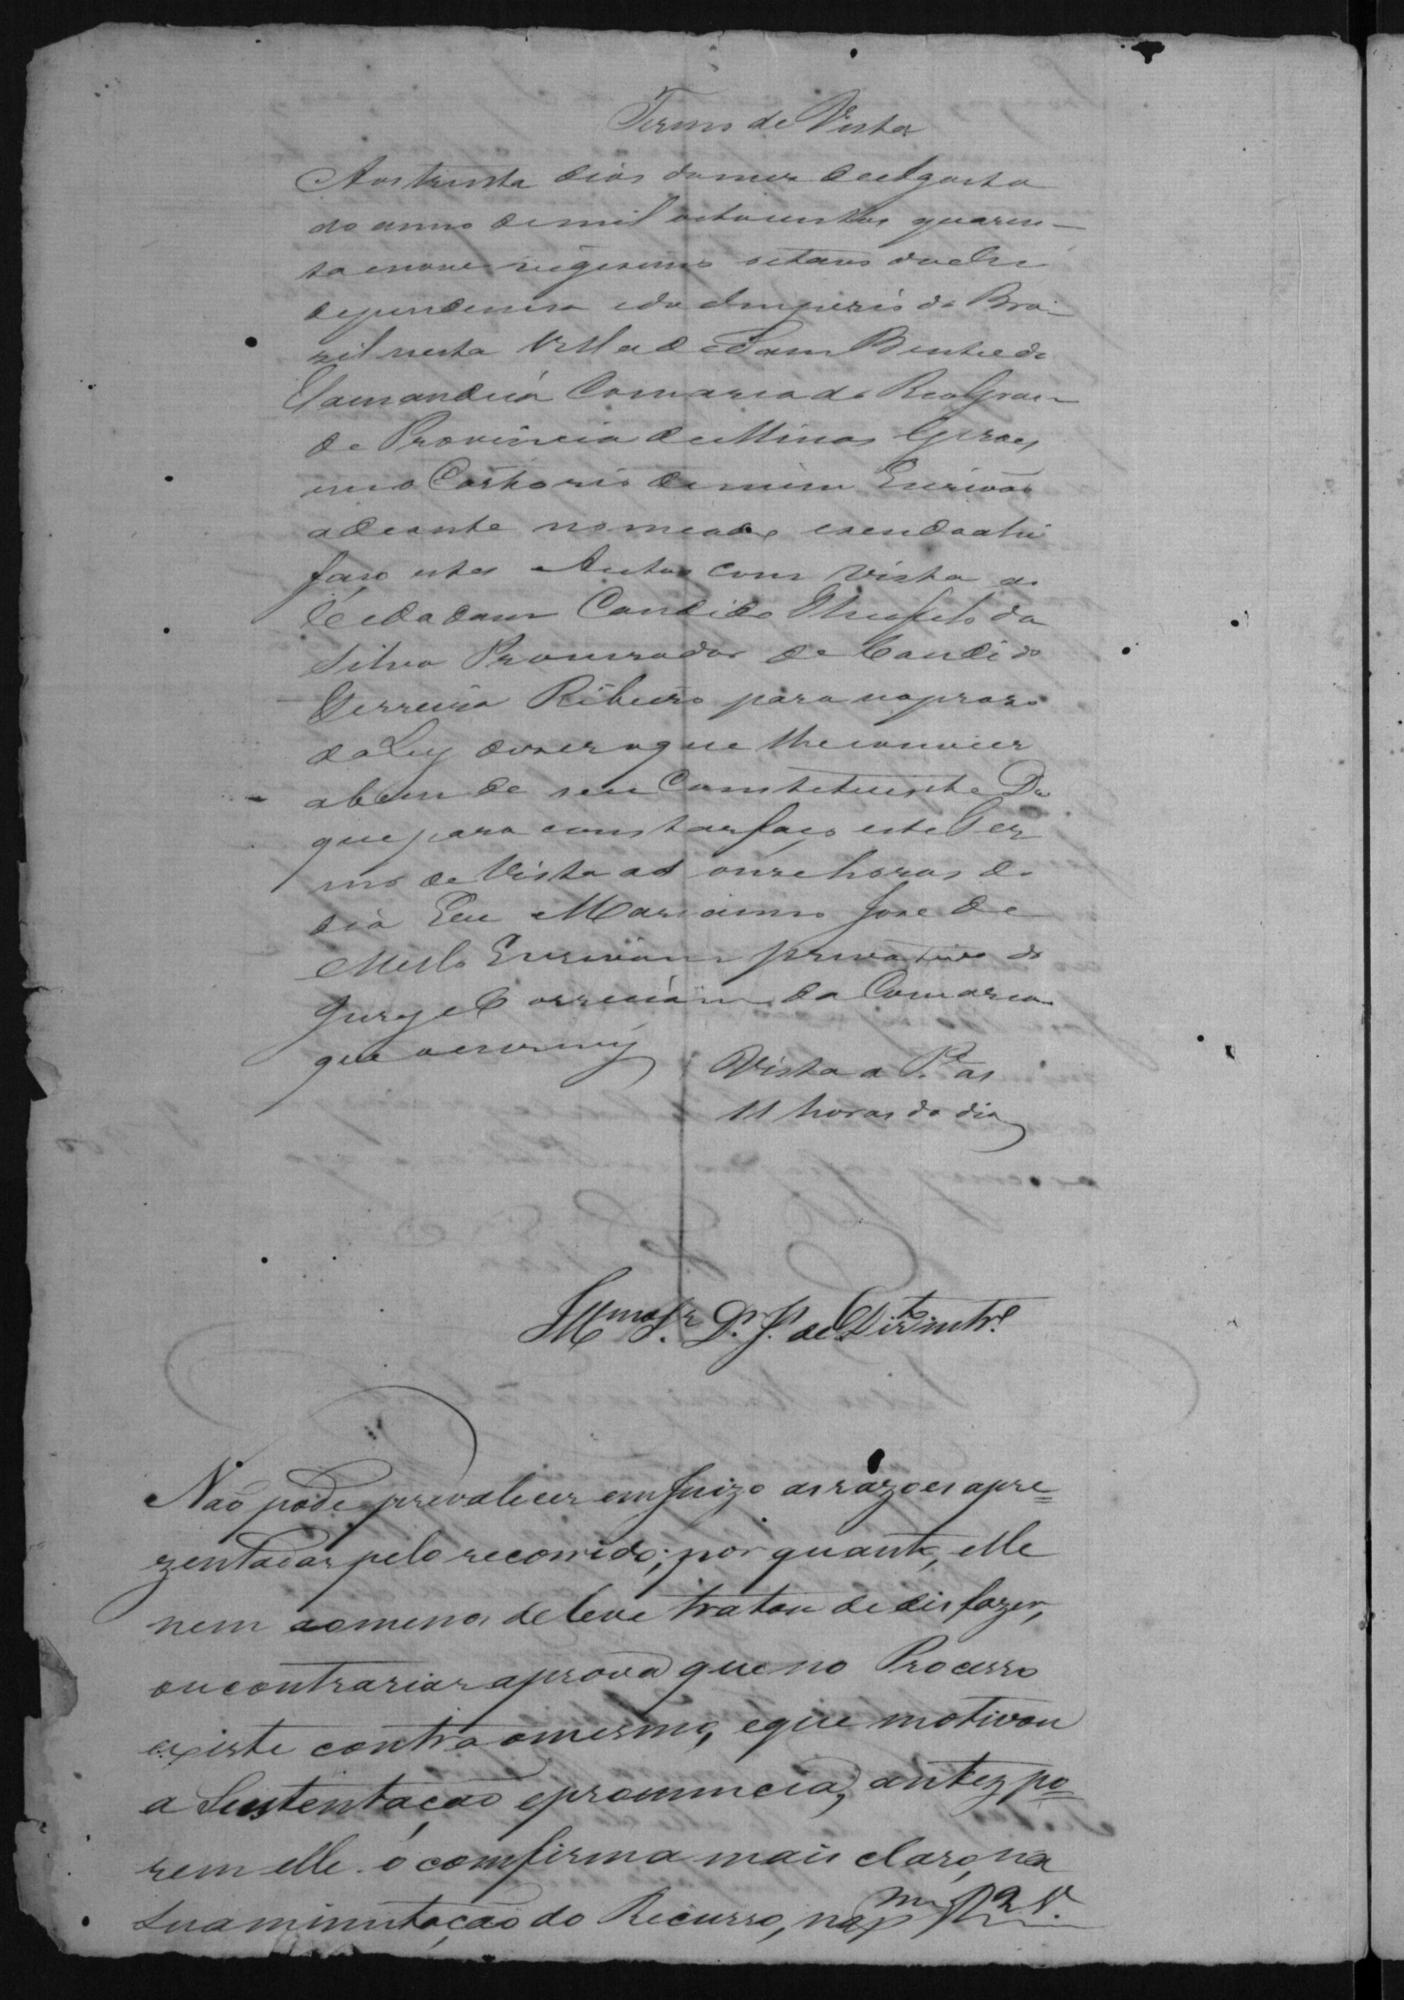 Termo de Vista
Aos trinta dias do mez de Agosto
do anno de mil oitocentos quaren-
ta e nove vigesimo oitavo da In
dependencia e do Imperio do Bra-
zil nesta Villa de Sam Bento do
Tamanduá Comarca do Rio Gran-
de Provincia de Minas Geraes
em o Cartorio de mim Escrivão
adeante nomeado e sendo ahi
faço estes Autos com vista ao
Cidadam Candido Theofilo da
Silva Procurador de Candido
Ferreira Ribeiro para no prazo
da Ley dizer o que lhe convier
a bem de seu Constituinte Do
que para constar faço este Ter
mo de Vista as onze horas do
dia Eu Marianno José de
Mello Escrivam privativo do
Jury e Correicám da Comarca
que o escrevy
Vista a P. as
11 horas do dia
Illmo Sr. Dr. J. de Dirto
Naõ póde prevalecer em Juizo as razoes apre=
zentadas pelo recorrido; por quanto, elle
nem ao menos de leve tratou de disfazer,
ou contrariar a prova que no Processo
existe contra o mesmo, e que motivou
a Sustentação e pronuncia, antez po=
rem elle o comfirma mais claro, na
sua minutação do Recurso, na